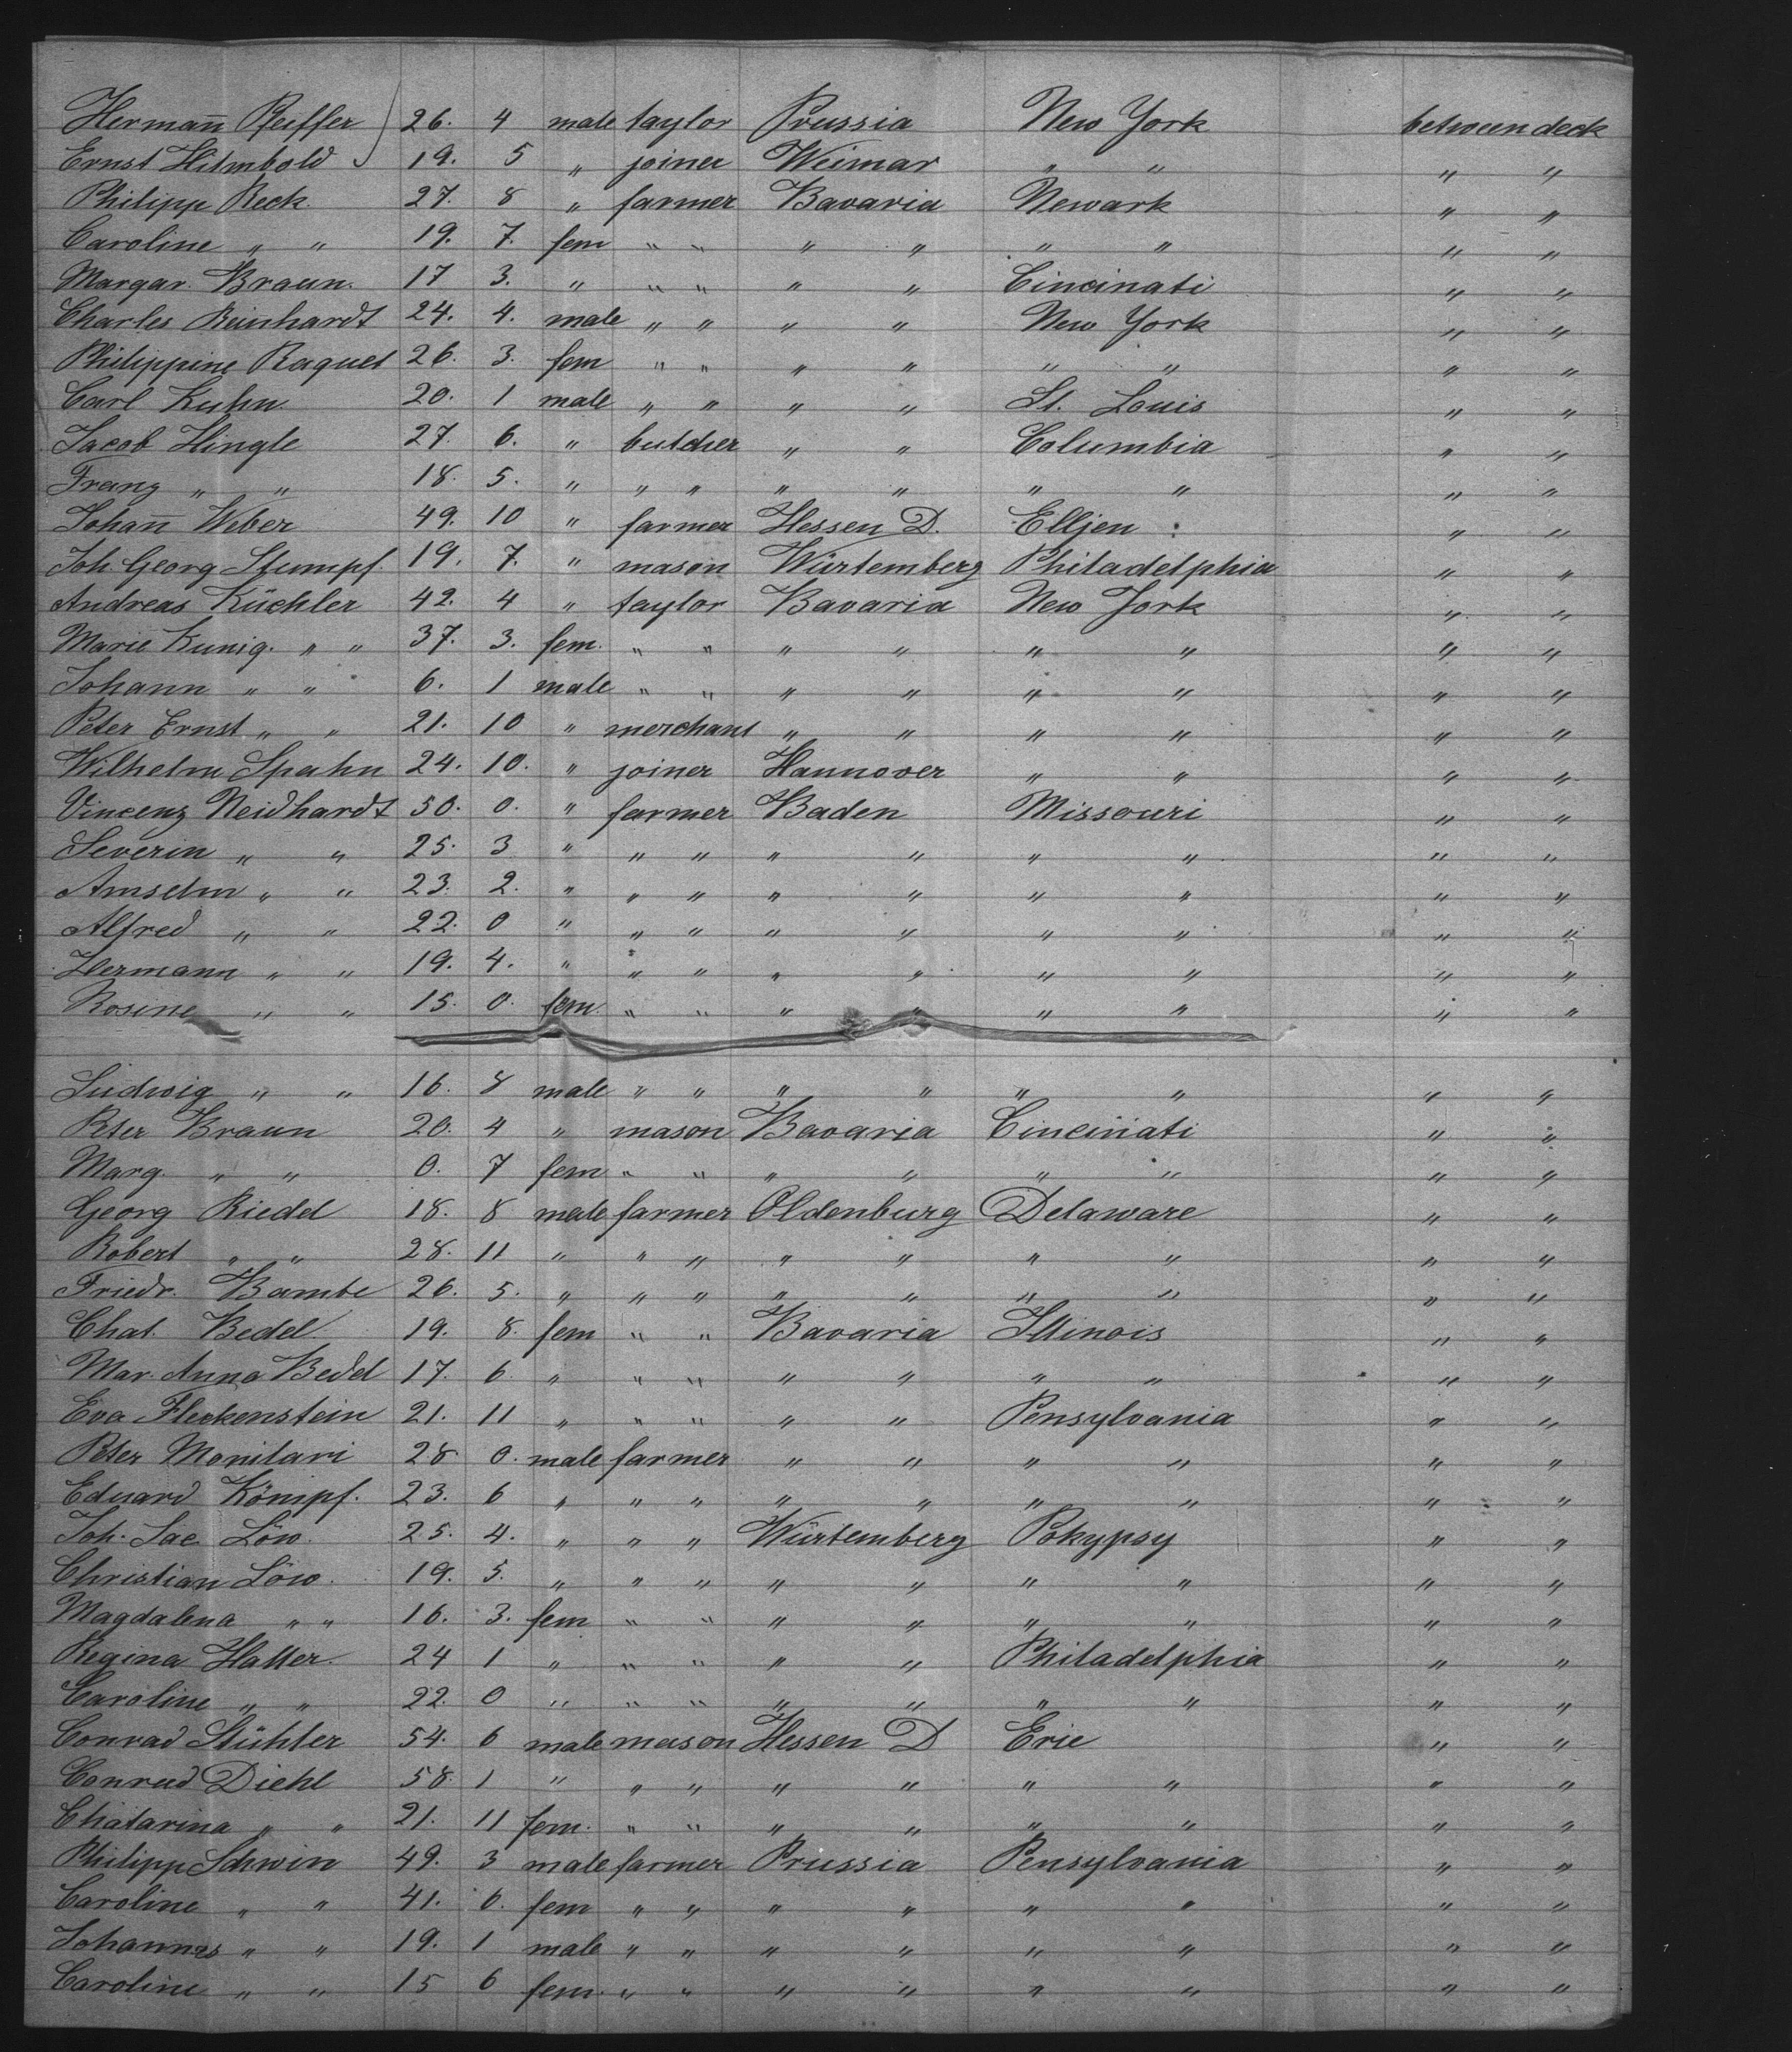 Hermann Pfeiffer 26. 4 male taylor Prussia New York between deck
Ernst Helmbold 19. 5 " joiner Weimar " " " "
Philipp Reck 27. 8 " farmer Bavaria Newark " "
Caroline " " 19. 7. fem " " " " " " " "
Margar. Braun. 17 3. " " " " " Cincinati " "
Charles Reinhardt 24. 4. male " " " " New York " "
Philippine Raquet 26. 3. fem " " " " " " " "
Carl Kuhn 20. 1 male " " " " St. Louis " "
Jacob Hingle 27. 6. " butcher " " Columbia " "
Franz " " 18. 5. " " " " " " " " "
Johann Weber 49. 10 " farmer Hessen D. Elljen " "
Joh. Georg Stumpf. 19. 7. " mason Würtemberg Philadelphia " "
Andreas Küchler 42. 4 " taylor Bavaria New York " "
Marie Kunig. " " 37. 3. fem. " " " " " " " "
Johann " " 6. 1 male " " " " " " " "
Peter Ernst " " 21. 10 " merchant " " " " " "
Wilhelm Spahn 24. 10. " joiner Hannover " " " "
Vincenz Neidhardt 50. 0. " farmer Baden Missouri " "
Severin " " 25. 3 " " " " " " " " "
Amselm " " 23. 2. " " " " " " " " "
Alfred " " 22. 0 " " " " " " " " "
Hermann " " 19. 4. " " " " " " " " "
Rosine " " 15. 0. fem. " " " " " " " "
Ludwig " " 16. 8 male " " " " " " " "
Peter Braun 20. 4 " mason Bavaria Cincinati " "
Marg. " " 0. 7 fem " " " " " " " "
Georg Riedel 18. 8 male farmer Oldenburg Delaware " "
Robert " " 28. 11 " " " " " " " " "
Friedr. Bambe 26. 5. " " " " " " " " "
Chat. Bedel. 19. 8. fem " " Bavaria Illinois " "
Mar. Anna Bedel 17. 6. " " " " " " " " "
Eva Fleckenstein 21. 11 " " " " " Pensylvania " "
Peter Monitari 28 0. male farmer " " " " " "
Eduard Kömpf. 23. 6 " " " " " " " " "
Joh. Jac. Löw. 25. 4. " " " Würtemberg Pokypsy " "
Christian Löw. 19. 5. " " " " " " " " "
Magdalena " " 16. 3. fem " " " " " " " "
Regina Halter. 24 1 " " " " " Philadelphia " "
Caroline " " 22. 0 " " " " " " " " "
Conrad Stühler 54. 6 male mason Hessen D Erie " "
Conrad Diehl 58. 1 " " " " " " " " "
Chatarina " " 21. 11 fem. " " " " " " " "
Philipp Schwin 49. 3 male farmer Prussia Pensylvania " "
Caroline " " 41. 0. fem " " " " " " " "
Johannes " " 19. 1 male " " " " " " " "
Caroline " " 15 6 fem. " " " " " " " "